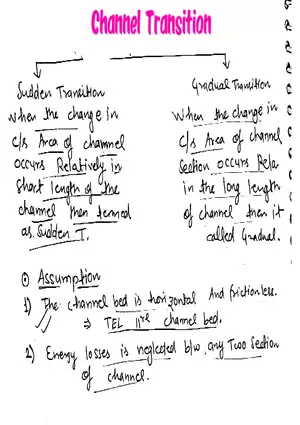 Channel Transition
Sudden Transition
When the change in
c/s Area of channel
occurs Relatively in
Short length of the
channel then termed
as Sudden T.
Gradual Transition
When the change in
c/s Area of channel
Section occurs Rela
in the long length
of channel then it
called Gradual.
Assumption
1) The channel bed is horizontal And frictionless.
⇒ TEL 11rel channel bed.
2) Energy losses is neglected b/w any Two Section
of channel.